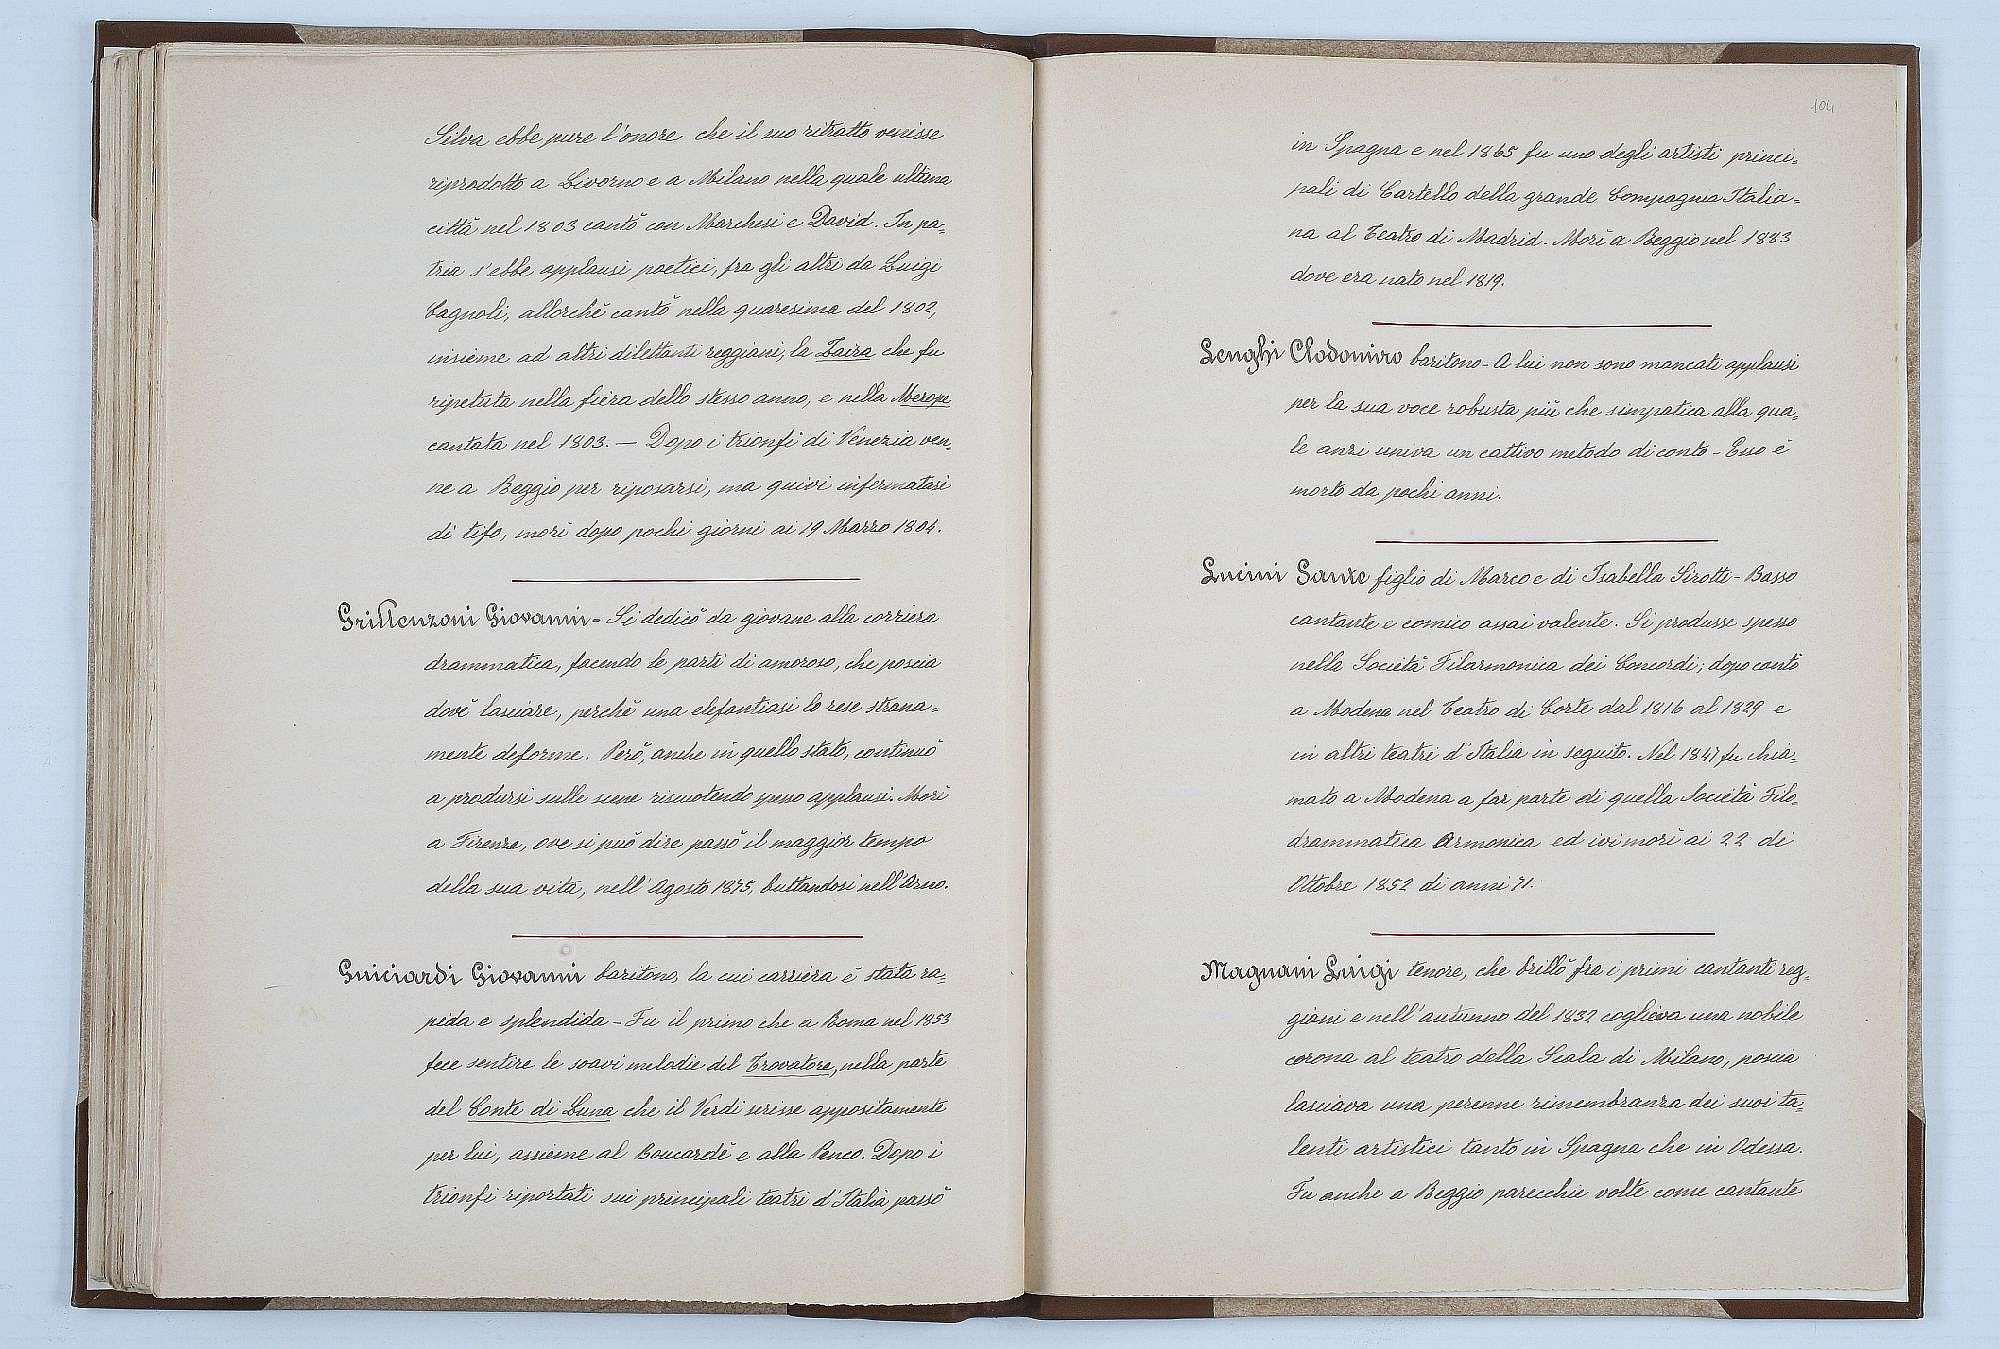 Silva ebbe pure l'onore che il suo ritratto venisse
riprodotto a Livorno e a Milano nella quale ultima
città nel 1803 cantò con Marchesi e David. In pa=
tria s'ebbe applausi poetici, fra gli altri da Luigi
Cagnoli, allorchè cantò nella quaresima del 1802,
insieme ad altri dilettanti reggiani, la Zaira che fu
ripetuta nella fiera dello stesso anno, e nella Merope
cantata nel 1803. — Dopo i trionfi di Venezia ven=
ne a Reggio per riposarsi, ma quivi infermatasi
di tifo, morì dopo pochi giorni ai 19 Marzo 1804.
Grillenzoni Giovanni - Si dedicò da giovane alla carriera
drammatica, facendo le parti di amoroso, che poscia
dovè lasciare, perchè una elefantiasi lo rese strana=
mente deforme. Però, anche in quello stato, continuò
a prodursi sulle scene riscuotendo spesso applausi. Morì
a Firenze, ove si può dire passò il maggior tempo
della sua vita, nell'Agosto 1875, buttandosi nell'Arno.
Guiciardi Giovanni baritono, la cui carriera è stata ra=
pida e splendida - Fu il primo che a Roma nel 1853
fece sentire le soavi melodie del Trovatore, nella parte
del Conte di Luna che il Verdi scrisse appositamente
per lui, assieme al Boucardè e alla Penco. Dopo i
trionfi riportati sui principali teatri d'Italia passò
104
in Spagna e nel 1865 fu uno degli artisti princi=
pali di Cartello della grande Compagnia Italia=
na al Teatro di Madrid. Morì a Reggio nel 1883
dove era nato nel 1819.
Lenghi Clodomiro baritono - A lui non sono mancati applausi
per la sua voce robusta più che simpatica alla qua=
le anzi univa un cattivo metodo di canto - Esso è
morto da pochi anni.
Lucini Sante figlio di Marco e di Isabella Sirotti - Basso
cantante e comico assai valente. Si produsse spesso
nella Società Filarmonica dei Concordi; dopo cantò
a Modena nel Teatro di Corte dal 1816 al 1829 e
in altri teatri d'Italia in seguito. Nel 1847 fu chia=
mato a Modena a far parte di quella Società Filo=
drammatica Armonica ed ivi morì ai 22 di
Ottobre 1852 di anni 71.
Magnani Luigi tenore, che brillò fra i primi cantanti reg=
giani e nell'autunno del 1832 coglieva una nobile
corona al teatro della Scala di Milano, poscia
lasciava una perenne rimembranza dei suoi ta=
lenti artistici tanto in Spagna che in Odessa.
Fu anche a Reggio parecchie volte come cantante